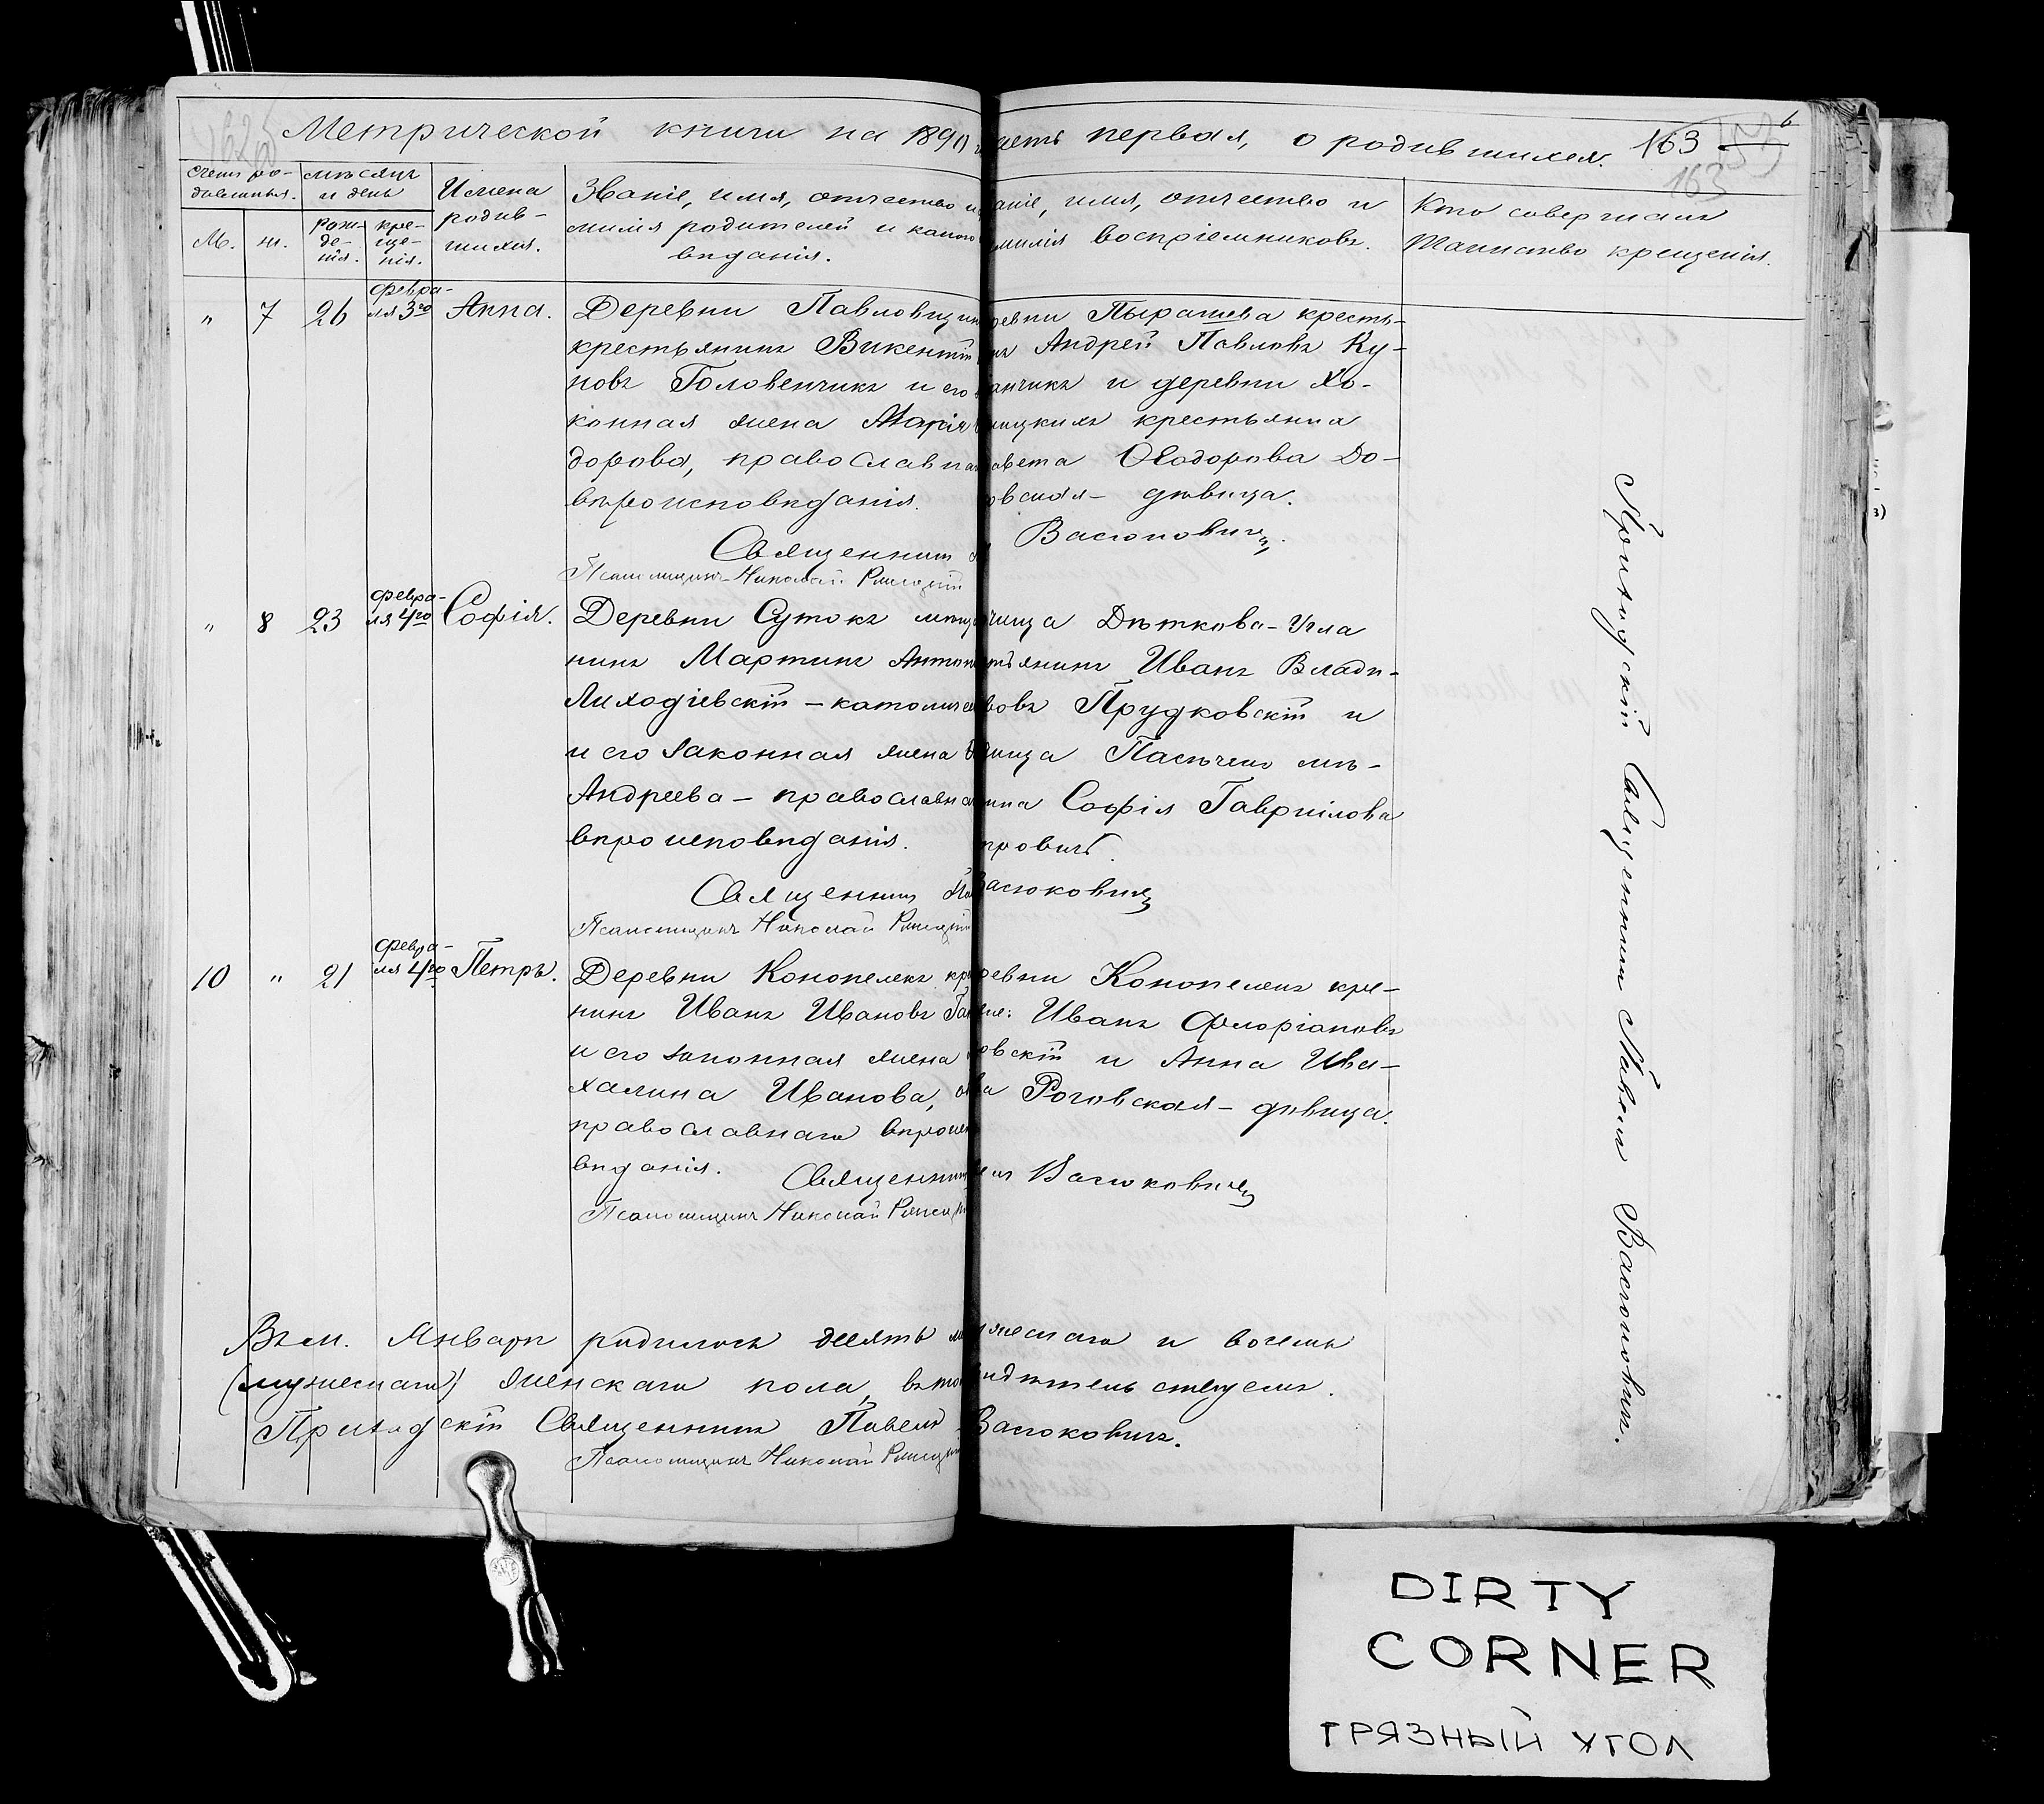 Метрической книги на 1890
часть первая, о родившихся. 163
163
6
Счетъ ро-
дившихся.
Мѣсяцъ
и день
М. ж.
рож-
де-
нія.
кре-
ще-
нія.
Имена
родив-
шихся.
Званіе, имя, отчество и
милія родителей и какого
вѣданія.
аніе, имя, отчество и
милія воспріемниковъ.
Кто совершалъ
таинство крещенія.
" 7 26
февра-
ля 3го
Анна.
Деревни Павловщин
крестьянинъ Викентій
новъ Головенчикъ и его
конная жена Марія
дорова, православна
вѣроисповѣданія.
Священникъ
Псаломщикъ Николай
ревни Пырашева кресть-
нъ Андрей Павловъ Ку-
анчикъ и деревни Хо-
крестьянка
авета Ѳеодорова До-
овская - дѣвица.
Васюковичъ.
" 8 23
февра-
ля 4го
Софія.
Деревни Сутокъ мѣща
нинъ Мартинъ Антон
Лиходіевскій - католичес
и его законная жена
Андреева - православна
вѣроисповѣданія.
Священникъ Па
Псаломщикъ Николай
Дѣткова-Угла
тьянинъ Иванъ Влади-
ровъ Прудковскій и
Пасѣчено мѣ-
нка Софія Гавриилова
тровичъ.
Васюковичъ
10 " 21
февра-
ля 4го
Петръ.
Деревни Конопелекъ кре
нинъ Иванъ Ивановъ
и его законная жена
халина Иванова, о
православнаго вѣроисп
вѣданія.
Священникъ
Псаломщикъ Николай
ревни Конопелекъ кре-
не: Иванъ Флоріановъ
овскій и Анна Ива-
ва Роговская - дѣвица.
Васюковичъ
Приходскій Священникъ Павелъ Васюковичъ.
Въ м. Январѣ родилось десять му
жескаго и восемь
(мужескаго) женскаго пола, въ том
идѣтельствуемъ.
Приходскій Священникъ Павелъ Васюковичъ.
Псаломщикъ Николай
DIRTY
CORNER
ГРЯЗНЫЙ УГОЛ